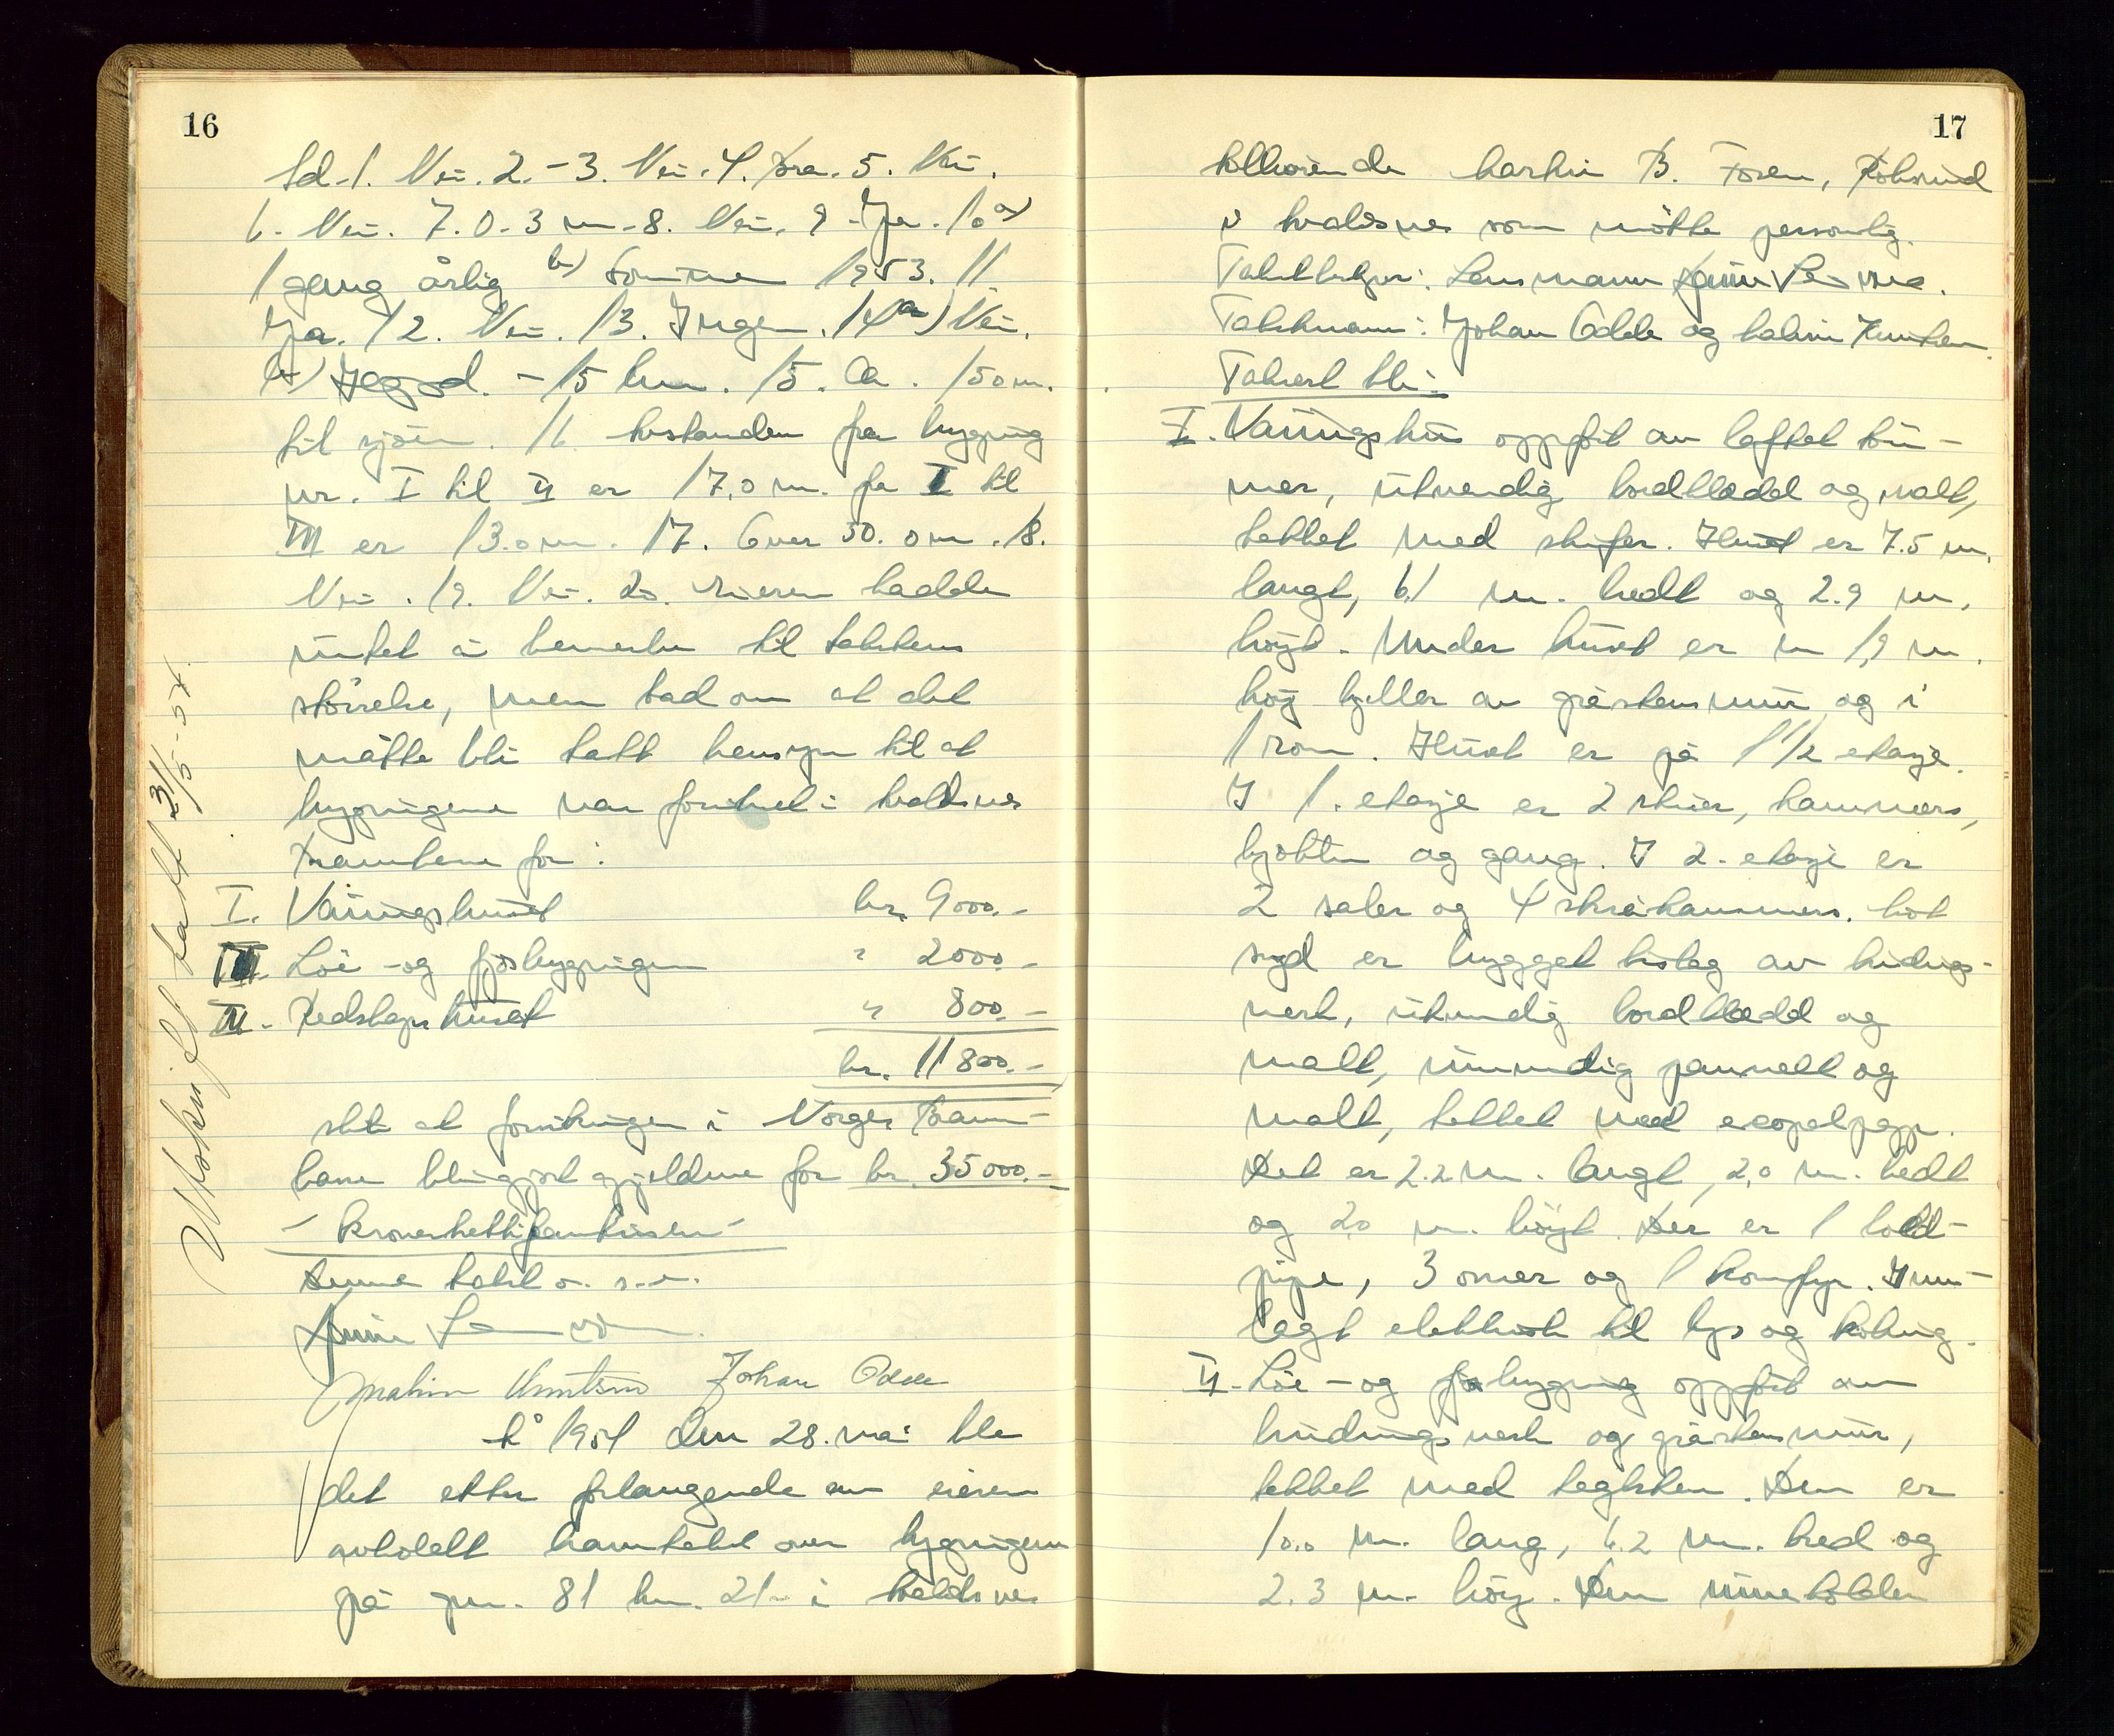 16
Ad. 1. Nei. 2. - 3. Nei. 4. Bra. 5. Nei.
6. Nei. 7. 0.3 m. 8. Nei. 9. Ja. 10 a)
1 gang årlig b) Sommeren 1953. 11.
Ja. 12. Nei. 13. Ingen. 14 a) Nei.
b) - 15 km. 15. Ca. 150 m.
til sjøen. 16. Avstanden fra bygning
nr. I til II er 17,0 m. fra I til
III er 13.0 m. 17. Over 30.0 m. 18.
Nei. 19. Nei. 20. Eieren hadde
intet å bemerke til takstens
størrelse, men bad om at det
måtte bli tatt hensyn til at
bygningene var forsikret i
Branntrygd for:
I. Våningshuset kr. 9000.-
III. Løe- og fjøsbygningen " 2000.-
IV. Redskapshuset " 800.-
kr. 11800.-
slik at forsikringen i Norges Brann-
kasse blir gjort gjeldene for kr. 35000.-
- kroner trettifemtusen -
Denne takst o. s. v.
Malvin Knutsen Johan Odde
År 1954 den 28. mai ble
det etter forlangende av eieren
avholdt branntakst over bygningene
på gnr. 81 bnr. 21 i
Utskrift tatt 31/5-54.
17
tilhørende B. Foren,
i som møtte personlig.
Takstbestyrer: Lensmann
Takstmenn: Johan Odde og Malvin Knutsen.
Taksert ble:
I. Våningshus oppført av laftet tøm-
mer, utvendig bordkledd og malt,
tekket med skifer. Huset er 7.5 m.
langt, 6.1 m. bredt og 2.9 m.
høyt. Under huset er en 1,9 m.
høy kjeller av gråstensmur og i
1 rom. Huset er på 1 1/2 etasje.
I 1. etasje er 2 stuer, kammers,
kjøkken og gang. I 2. etasje er
2 saler og 4 skråkammers. Mot
syd er bygget tilbygg av bindings-
verk, utvendig bordkledd og
malt, innvendig pannelt og
malt, tekket med papp.
Det er 2.2 m. langt, 2,0 m. bredt
og 2,0 m. høyt. Der er 1 todd-
pipe, 3 ovner og 1 komfyr. Inn-
lagt elektrisk til lys og koking.
II. Løe- og fjøsbygning oppført av
bindingsverk og gråstensmur,
tekket med teglsten. Den er
10.0 m. lang, 6.2 m. bred og
2.3 m. høy. Den inneholder